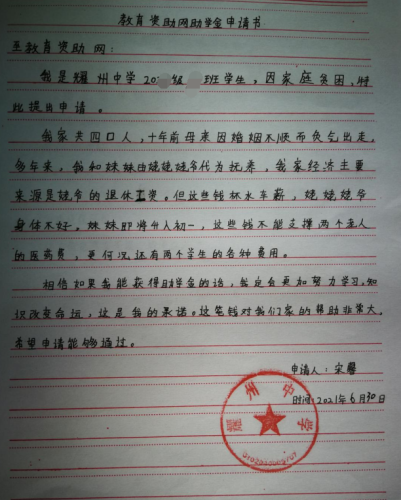 教育资助网助学金申请书
至教育资助网：
我是耀州中学20 级 班学生，因家庭贫困，特
此提出申请。
我家共四口人，十年前母亲因婚姻不顺而负气出走。
多年来，我和妹妹由姥姥姥爷代为抚养，我家经济主要
来源是姥爷的退休工资。但这些钱杯水车薪，姥姥姥爷
身体不好。妹妹即将升入初一，这些钱不能支撑两个老人
的医药费，更何况还有两个学生的各种费用。
相信如果我能获得助学金的话，我定会更加努力学习，知
识改变命运，这是我的承诺。这笔钱对我们家的帮助非常大，
希望申请能够通过。
申请人：宋馨
时间：2021年6月30日
耀州中学